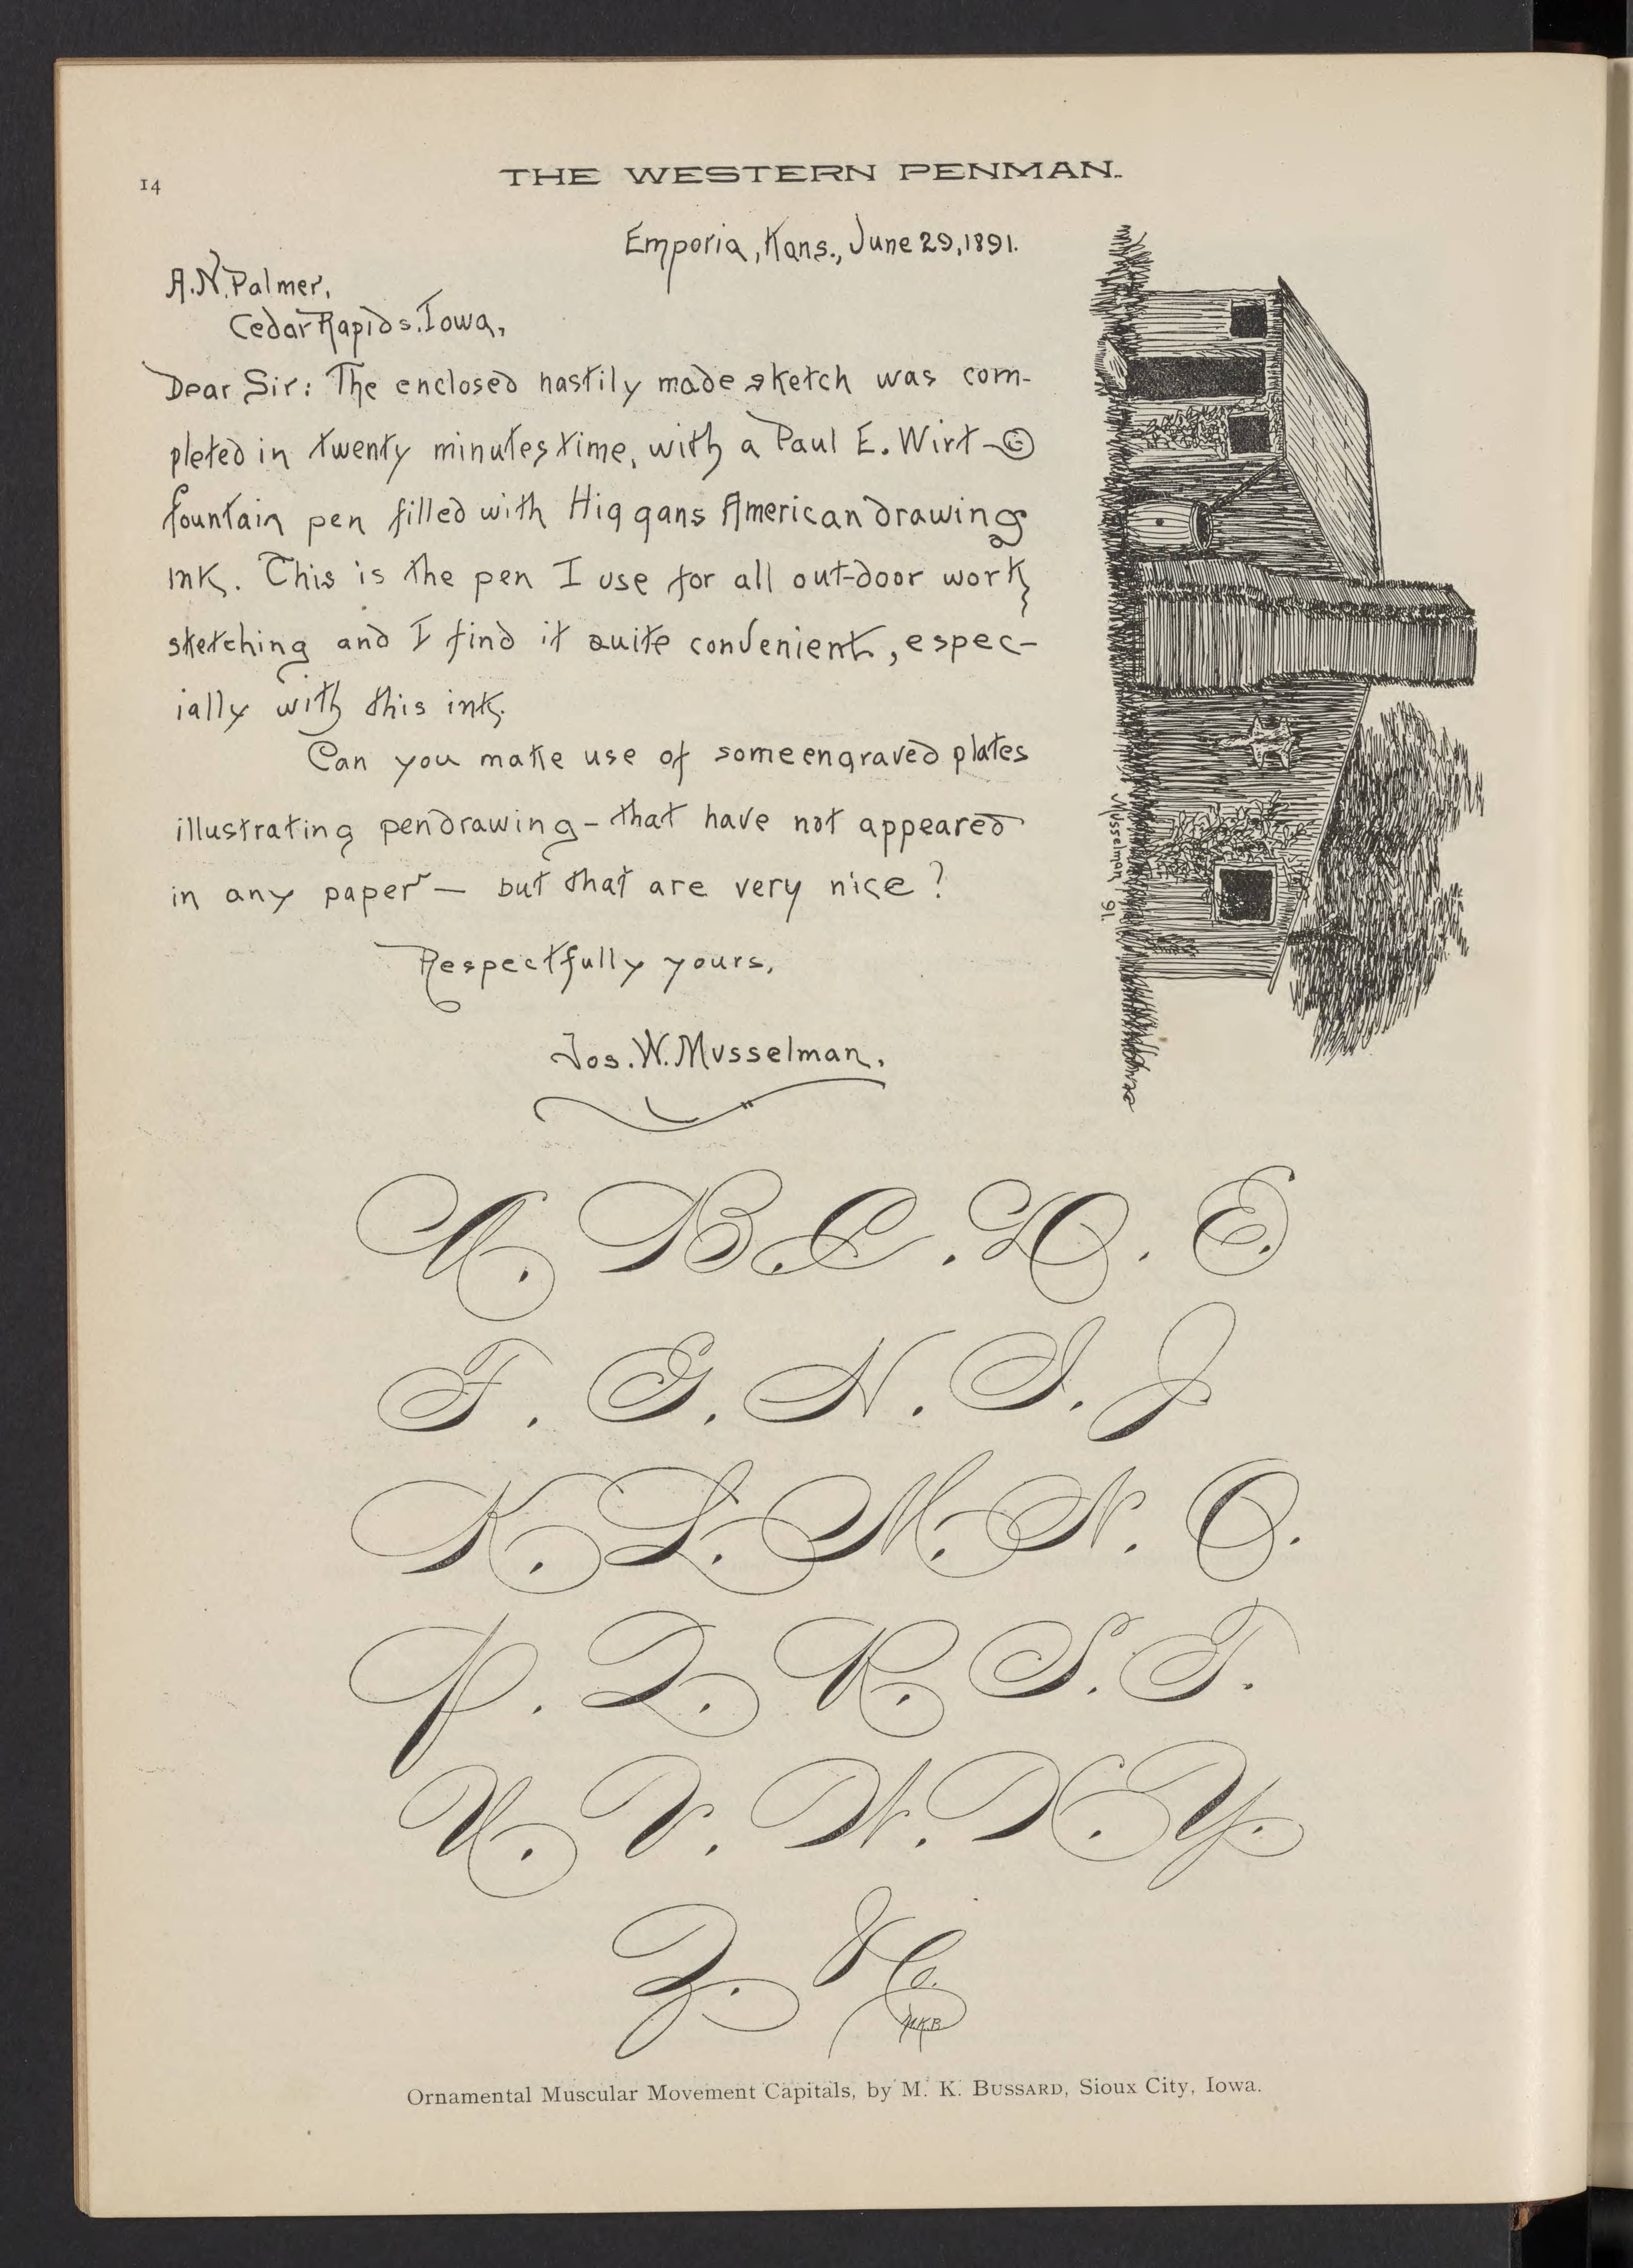 14
THE WESTERN PENMAN.
Emporia, Kans., June 29, 1891.
A. N. Palmer,
Cedar Rapids. Iowa,
Dear Sir: The enclosed hastily made sketch was com-
pleted in twenty minutes time, with a Paul E. Wirt
fountain pen filled with Higgans American drawing
ink. This is the pen I use for all out-door work
sketching and I find it quite convenient, espec-
ially with this ink.
Can you make use of some engraved plates
illustrating pendrawing - that have not appeared
in any paper — but that are very nice?
Respectfully yours,
Jos. W. Musselman.
Musselman 91.
A. B. C. D. E.
F. G. H. I. J
K. L. M. N. O.
P. Q. R. S. T.
U. V. W. X. Y.
Z. & Co.
M.K.B
Ornamental Muscular Movement Capitals, by M. K. BUSSARD, Sioux City, Iowa.